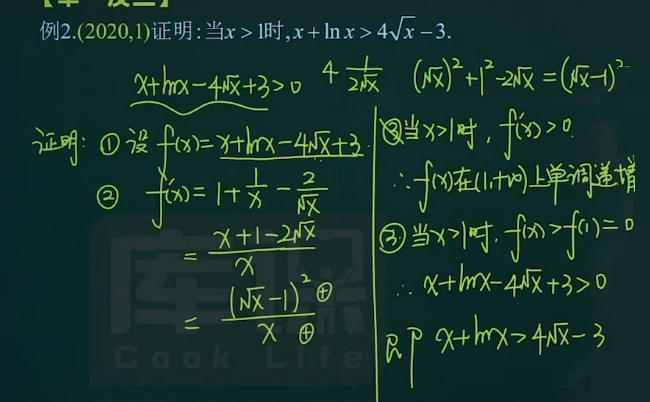 例2.(2020,1)证明:当x>1时,x+lnx>4√x−3.
x+lnx−4√x+3>0
4·1/(2√x)
(√x)²+1²−2√x=(√x−1)²
证明: ① 设 f(x)=x+lnx−4√x+3
② f'(x)=1+1/x−2/√x
=(x+1−2√x)/x
=(√x−1)² ⊕/x ⊕
③当x>1时, f'(x)>0
∴f(x)在(1,+∞)上单调递增
③当x>1时, f(x)>f(1)=0
∴x+lnx−4√x+3>0
即 x+lnx>4√x−3
库课
Cook Life